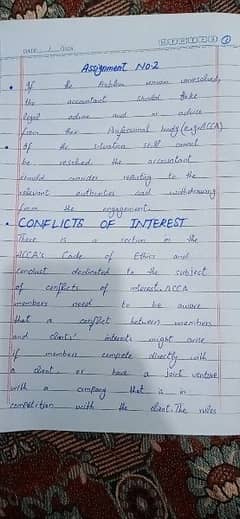 DATE
Assignment No.2
If the Problem remain unresolved,
the accountant should take
legal advice and or advice
from their Professional body (e.g. ACCA)
If the situation still cannot
be resolved the accountant
should consider reporting to the
relevant authorities and withdrawing
from the engagement.
CONFLICTS OF INTEREST
There is a section in the
ACCA's Code of Ethics and
conduct dedicated to the subject
of conflicts of interest. ACCA
members need to be aware
that a conflict between members
and clients' interests might arise
if members compete directly with
a client, or have a joint venture
with a company that is in
competition with the client. The rules